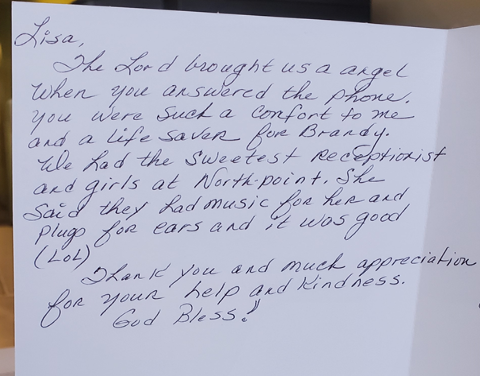 Lisa,
The Lord brought us a angel
When you answered the phone.
You were such a comfort to me
and a life saver for Brandy.
We had the sweetest receptionist
and girls at North-point. She
said they had music for her and
plugs for ears and it was good
(LoL)
Thank you and much appreciation
for your help and kindness.
God Bless!